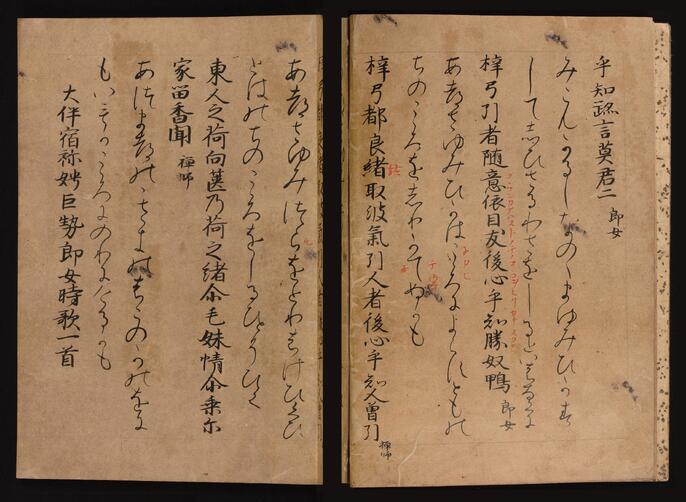 乎知跡言莫君二 郎女
みこもかるしなのゝまゆみひかす
して志ひさるわさをしるといはなくに
梓弓引者随意依目友後心乎知勝奴鴨 郎女
あつさゆみひかは よらめともの
ちのこゝろを志りかてぬかも
梓弓都良緒取波氣引人者後心乎知人曽引 禅師
あつさゆみつらをとりはけひくひ
とはのちのこゝろをしるひとそひく
東人之荷向篋乃荷之緒尓毛妹情尓乗尓
家留香聞 禅師
あつま のはこのにのをに
もいもかこゝろにのりにけるかも
大伴宿祢娉巨勢郎女時歌一首